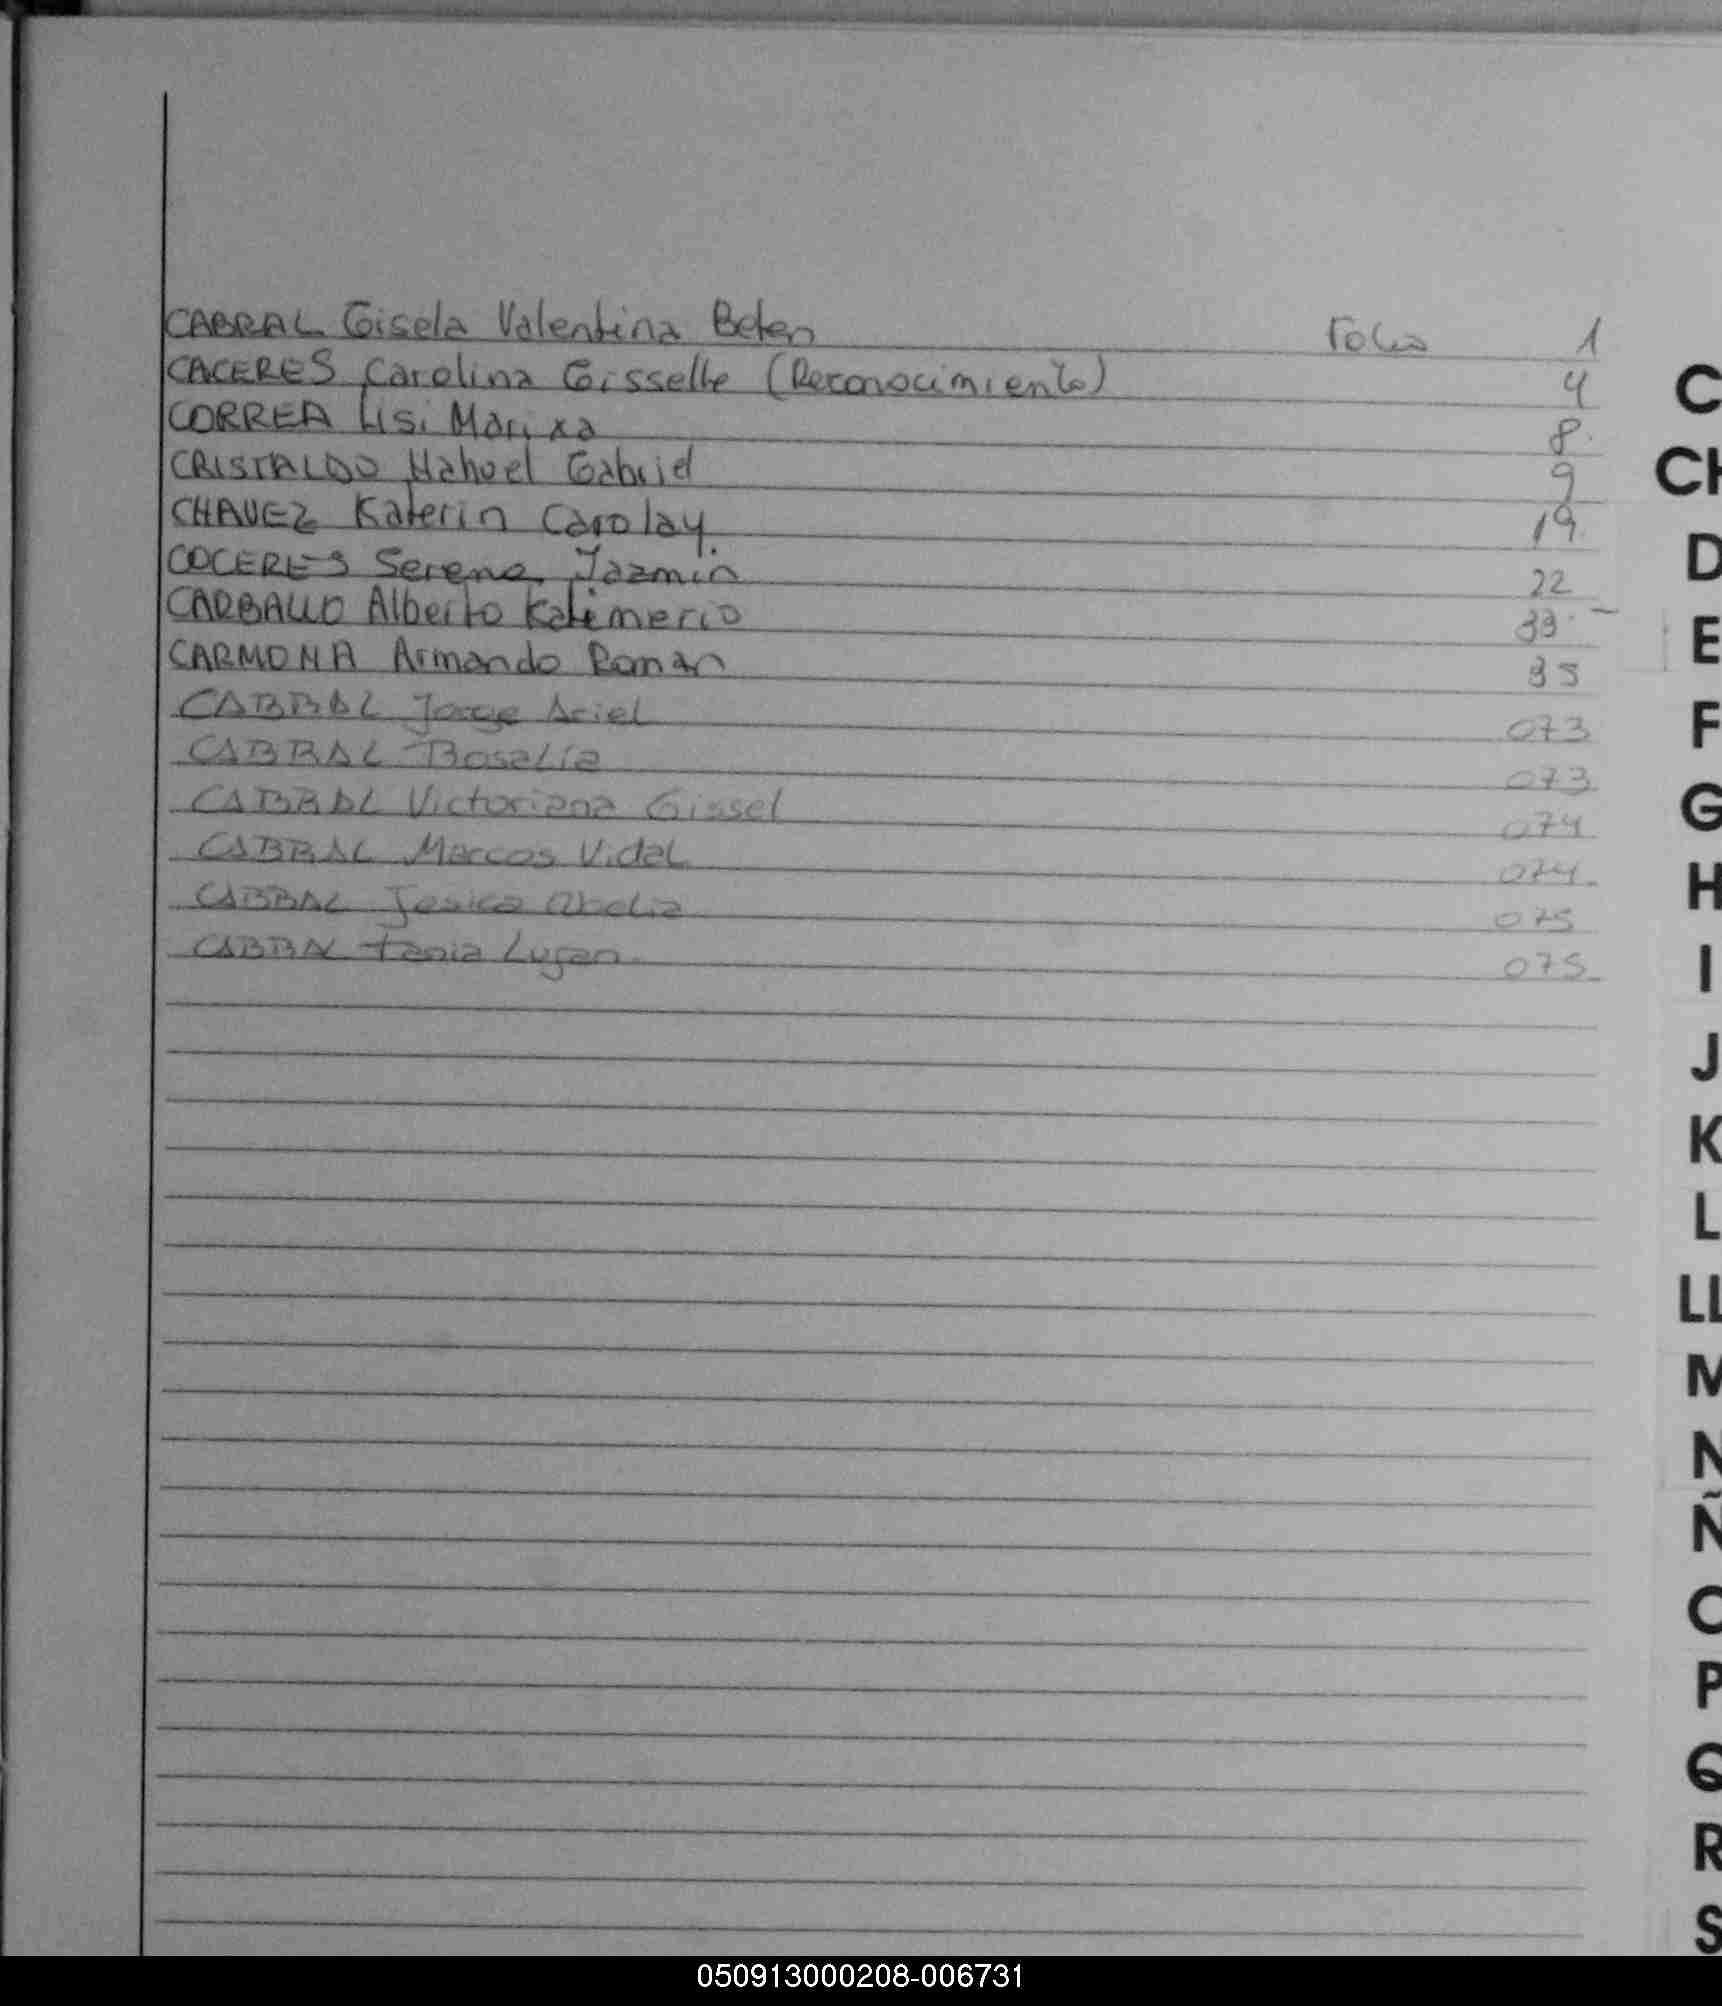 CABRAL Gisela Valentina Belen Folio 1
CACERES Carolina Gisselle (Reconocimiento) 4
CORREA Lisi Marixa 8
CRISTALDO Nahuel Gabriel 9
CHAVEZ Katerin Carolay 19
COCERES Serena Jazmin 22
CARBALLO Alberto Kalimerio 33
CARMONA Armando Roman 35
CABRAL Jorge Ariel 073
CABRAL Rosalia 073
CABRAL Victoriana Gissel 074
CABRAL Marcos Vidal 074
CABRAL Jesica 075
CABRAL Tania Lujan 075
C
CH
D
E
F
G
H
I
J
K
L
LL
M
N
Ñ
O
P
Q
R
S
050913000208-006731